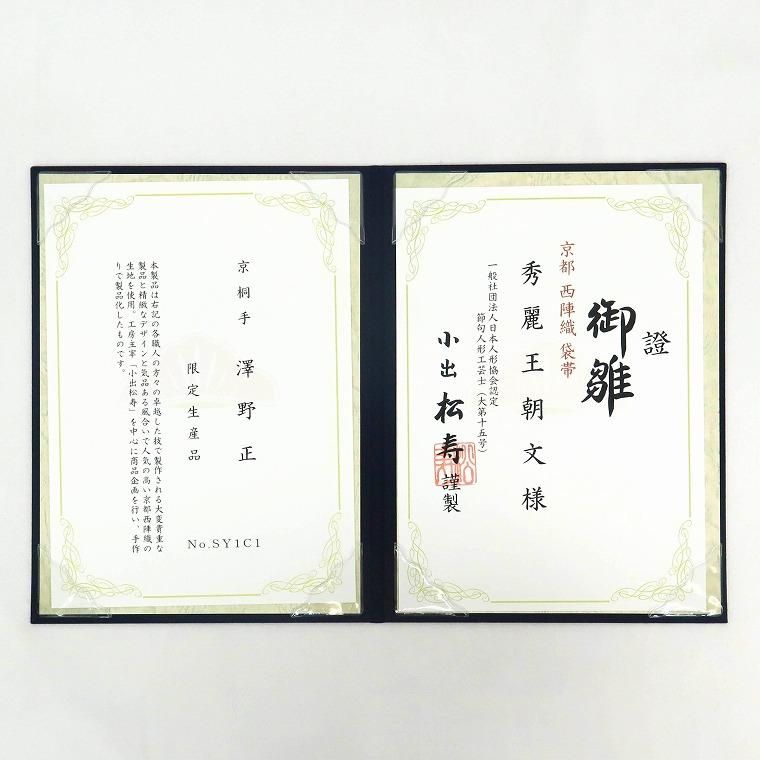 證
御雛
京都 西陣織 袋帯
秀麗王朝文様
一般社団法人日本人形協会認定
節句人形工芸士(大第十五号)
小出松寿 謹製
京桐手 澤野正
限定生産品
No.SY1C1
本製品は右記の各職人の方々の卓越した技で製作される大変貴重な
製品と精緻なデザインと気品ある風合いで人気の高い京都西陣織の
生地を使用。工房主宰「小出松寿」を中心に商品企画を行い、手作
りで製品化したものです。